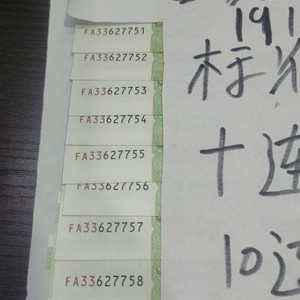 191
FA33627751
FA33627752
标准
FA33627753
FA33627754
十连
FA33627755
FA33627756
FA33627757
10连
FA33627758